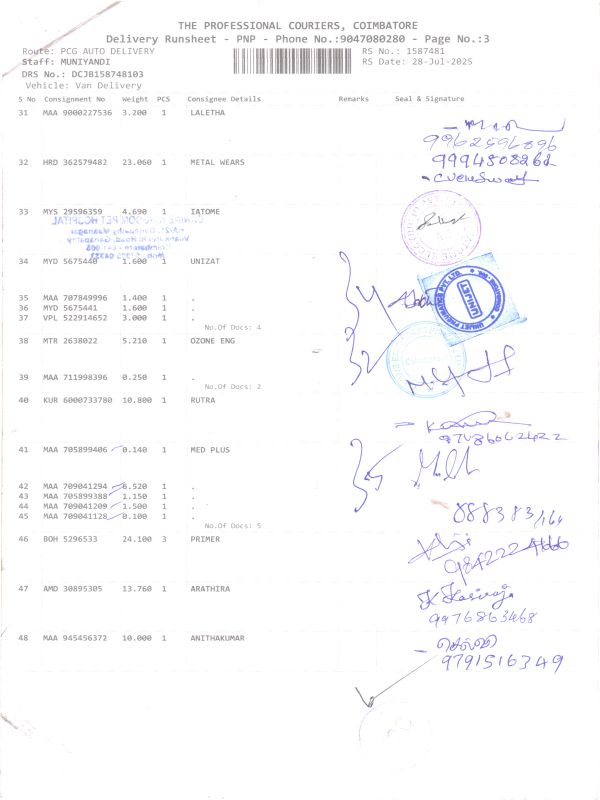 THE PROFESSIONAL COURIERS, COIMBATORE
Delivery Runsheet - PNP - Phone No.:9047080280 - Page No.:3
Route: PCG AUTO DELIVERY
RS No.: 1587481
Staff: MUNIYANDI
RS Date: 28-Jul-2025
DRS No.: DCJB158748103
Vehicle: Van Delivery
S No Consignment No Weight PCS Consignee Details Remarks Seal & Signature
31 MAA 9000227536 3.200 1 LALETHA
9962596896
32 HRD 362579482 23.060 1 METAL WEARS
9994508262
33 MYS 29596359 4.690 1 IATOME
34 MYD 5675440 1.600 1 UNIZAT
UNIJET PNEUMATICS PVT. LTD.
UNIJET
35 MAA 707849996 1.400 1 .
36 MYD 5675441 1.600 1 .
37 VPL 522914652 3.000 1 .
No.Of Docs: 4
38 MTR 2638022 5.210 1 OZONE ENG
39 MAA 711998396 0.250 1 .
No.Of Docs: 2
40 KUR 6000733780 10.800 1 RUTRA
41 MAA 705899406 0.140 1 MED PLUS
42 MAA 709041294 6.520 1 .
43 MAA 705899388 1.150 1 .
44 MAA 709041209 1.500 1 .
45 MAA 709041128 0.100 1 .
No.Of Docs: 5
46 BOH 5296533 24.100 3 PRIMER
47 AMD 30895305 13.760 1 ARATHIRA
9976863468
48 MAA 945456372 10.000 1 ANITHAKUMAR
9791516349